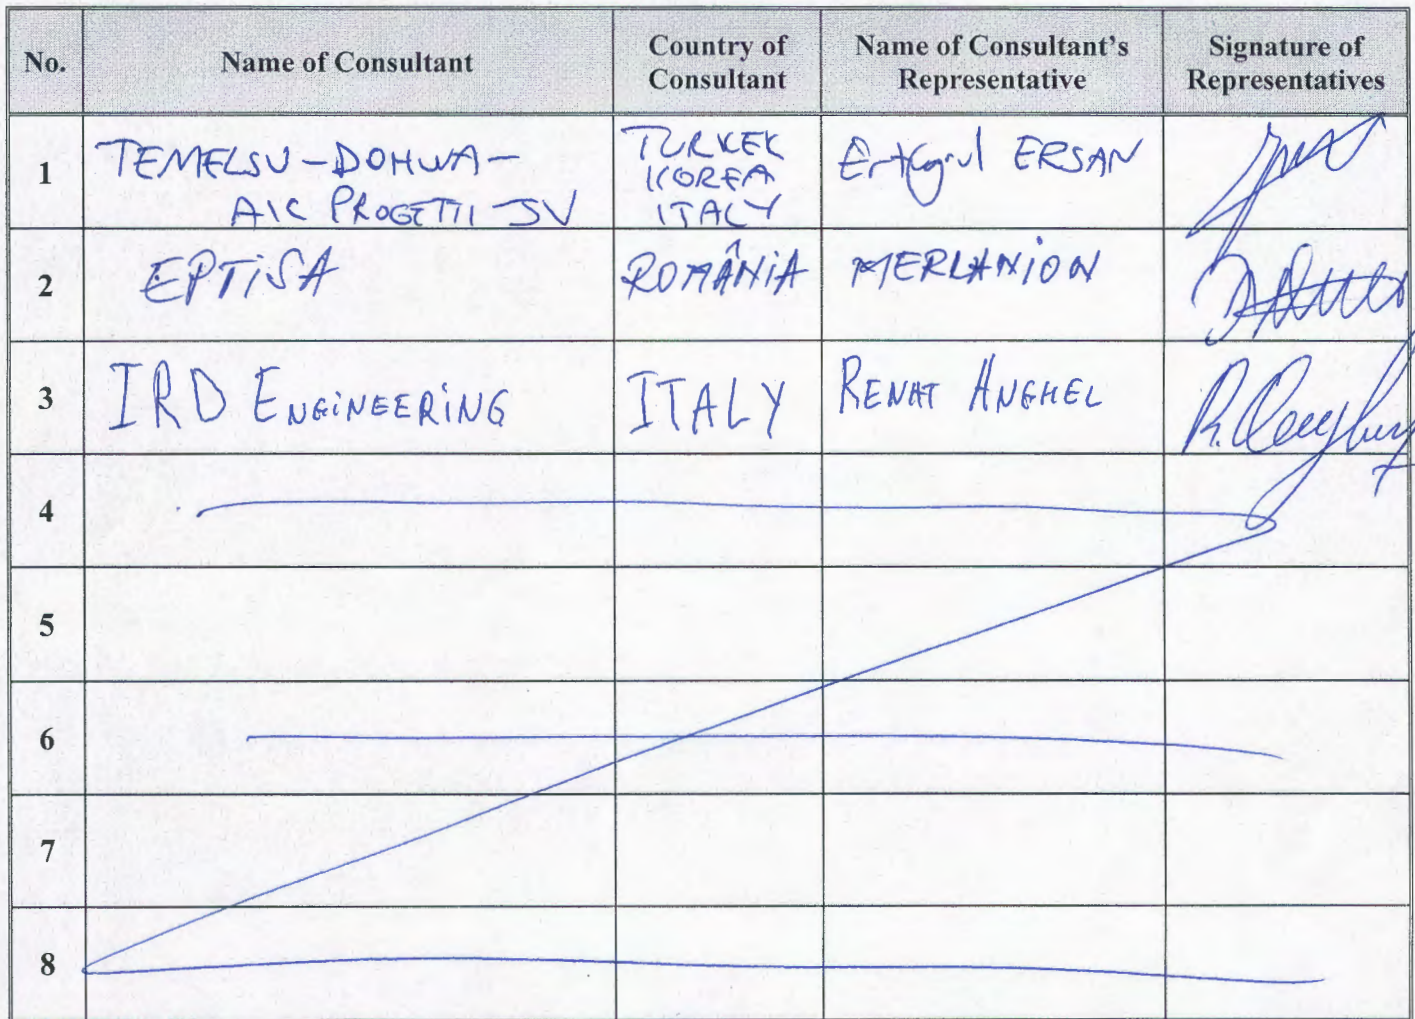 No.
Name of Consultant
Country of
Consultant
Name of Consultant's
Representative
Signature of
Representatives
1
TEMELSU-DOHWA-
AIC PROGETTI JV
TURKEK
KOREA
ITALY
ERSAN
2
EPTiSA
ROMÂNiA
MERLANION
3
IRD ENGiNEERiNG
ITALY
RENAT ANGHEL
4
5
6
7
8